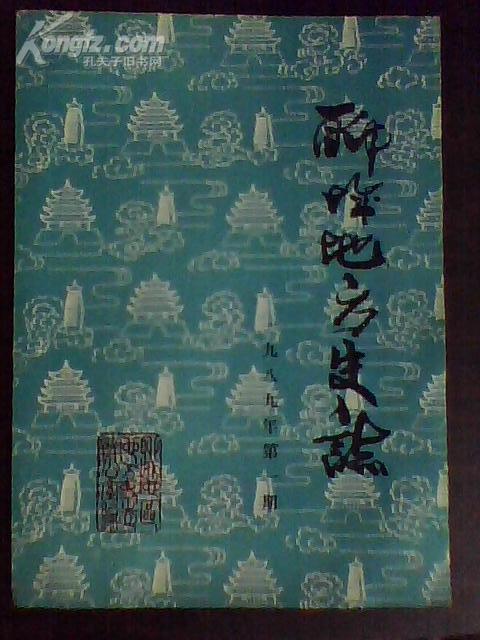 Kongfz.com
孔夫子旧书网
聊城地方史志
九八九年第一期